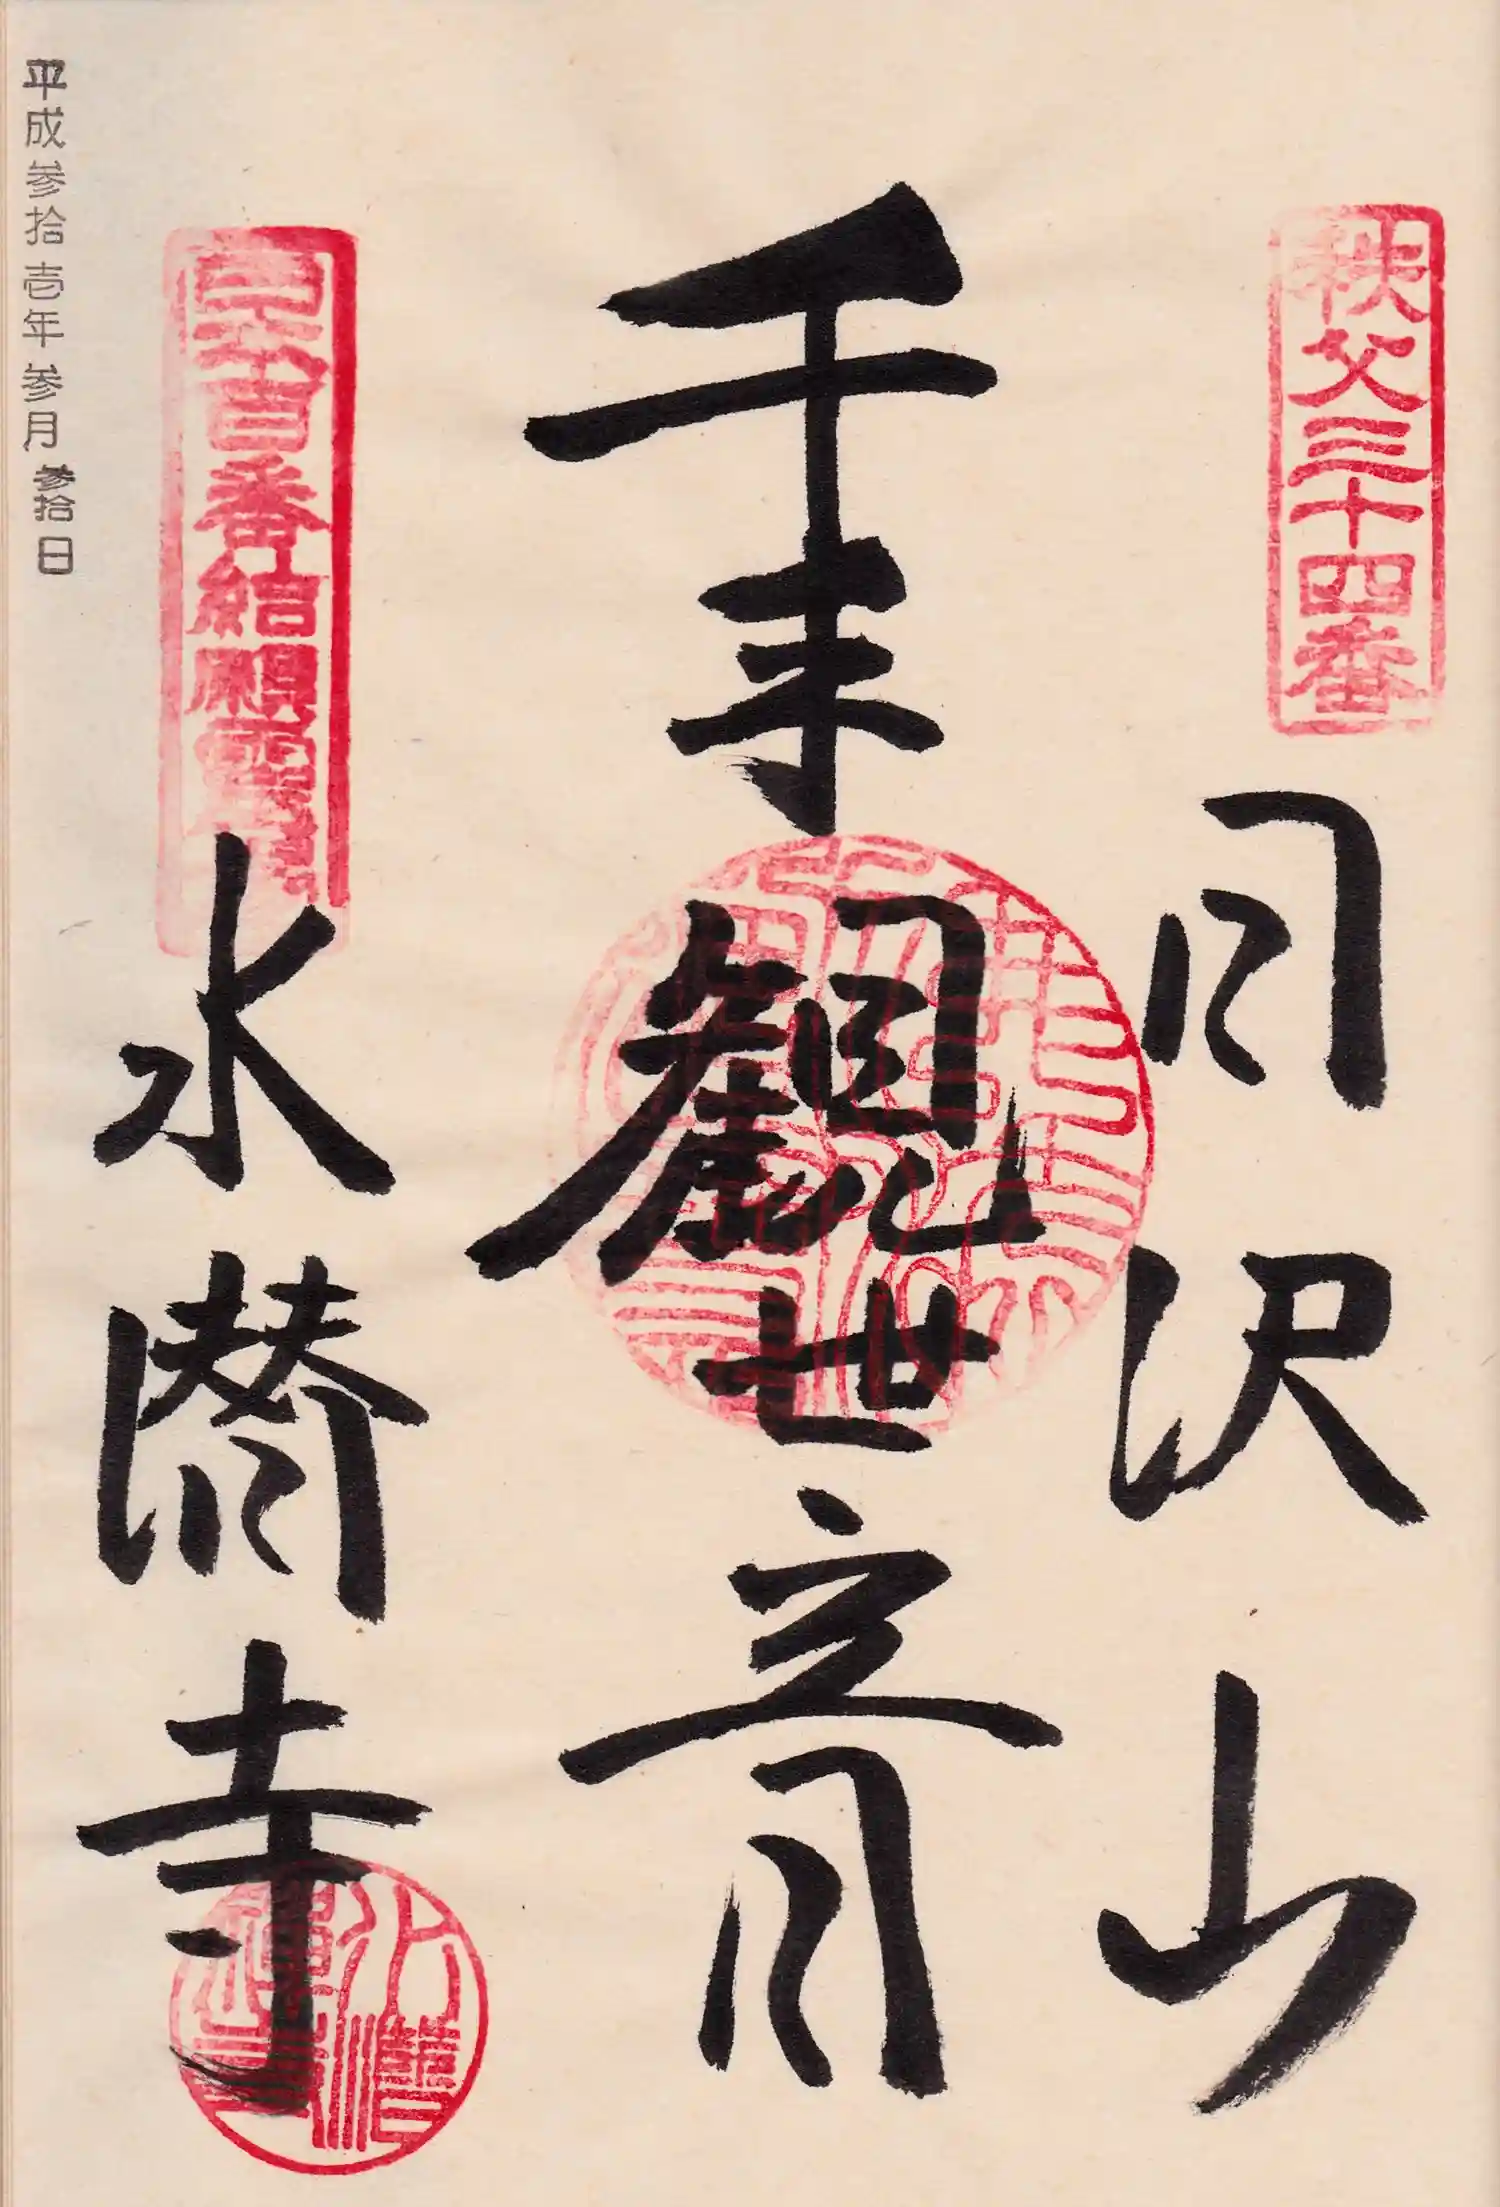 秩父三十四番
日沢山
千手観世音
日本百番結願霊場
水潜寺
平成参拾壱年参月参拾日